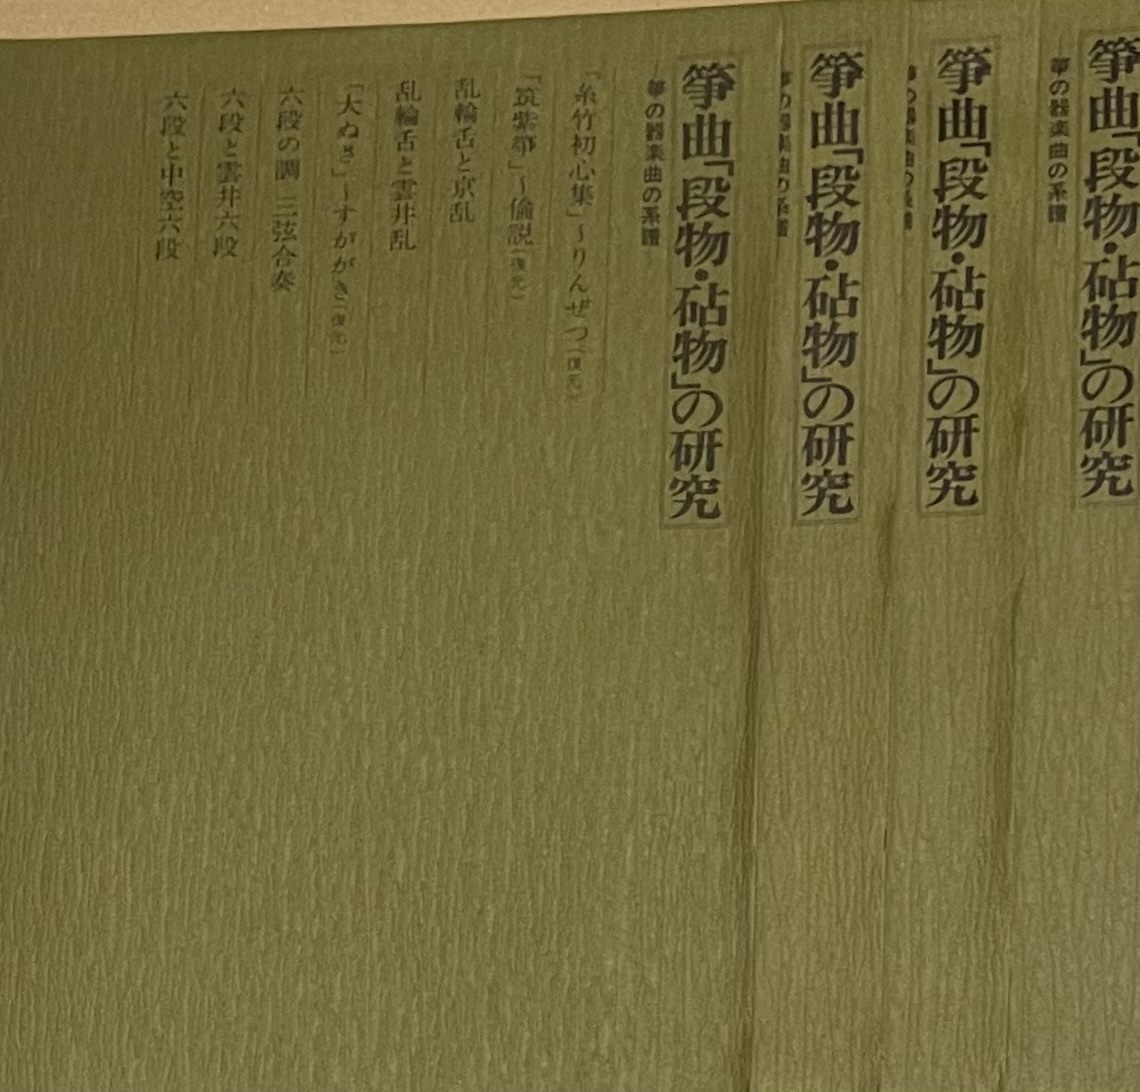 箏曲「段物・砧物」の研究
箏の器楽曲の系譜
箏曲「段物・砧物」の研究
箏曲「段物・砧物」の研究
箏の器楽曲の系譜
箏曲「段物・砧物」の研究
—箏の器楽曲の系譜
「糸竹初心集」～りんぜつ（復元）
「筑紫箏」～倫説（復元）
乱輪舌と京乱
乱輪舌と雲井乱
「大ぬさ」～すががき（復元）
六段の調 三弦合奏
六段と雲井六段
六段と中空六段